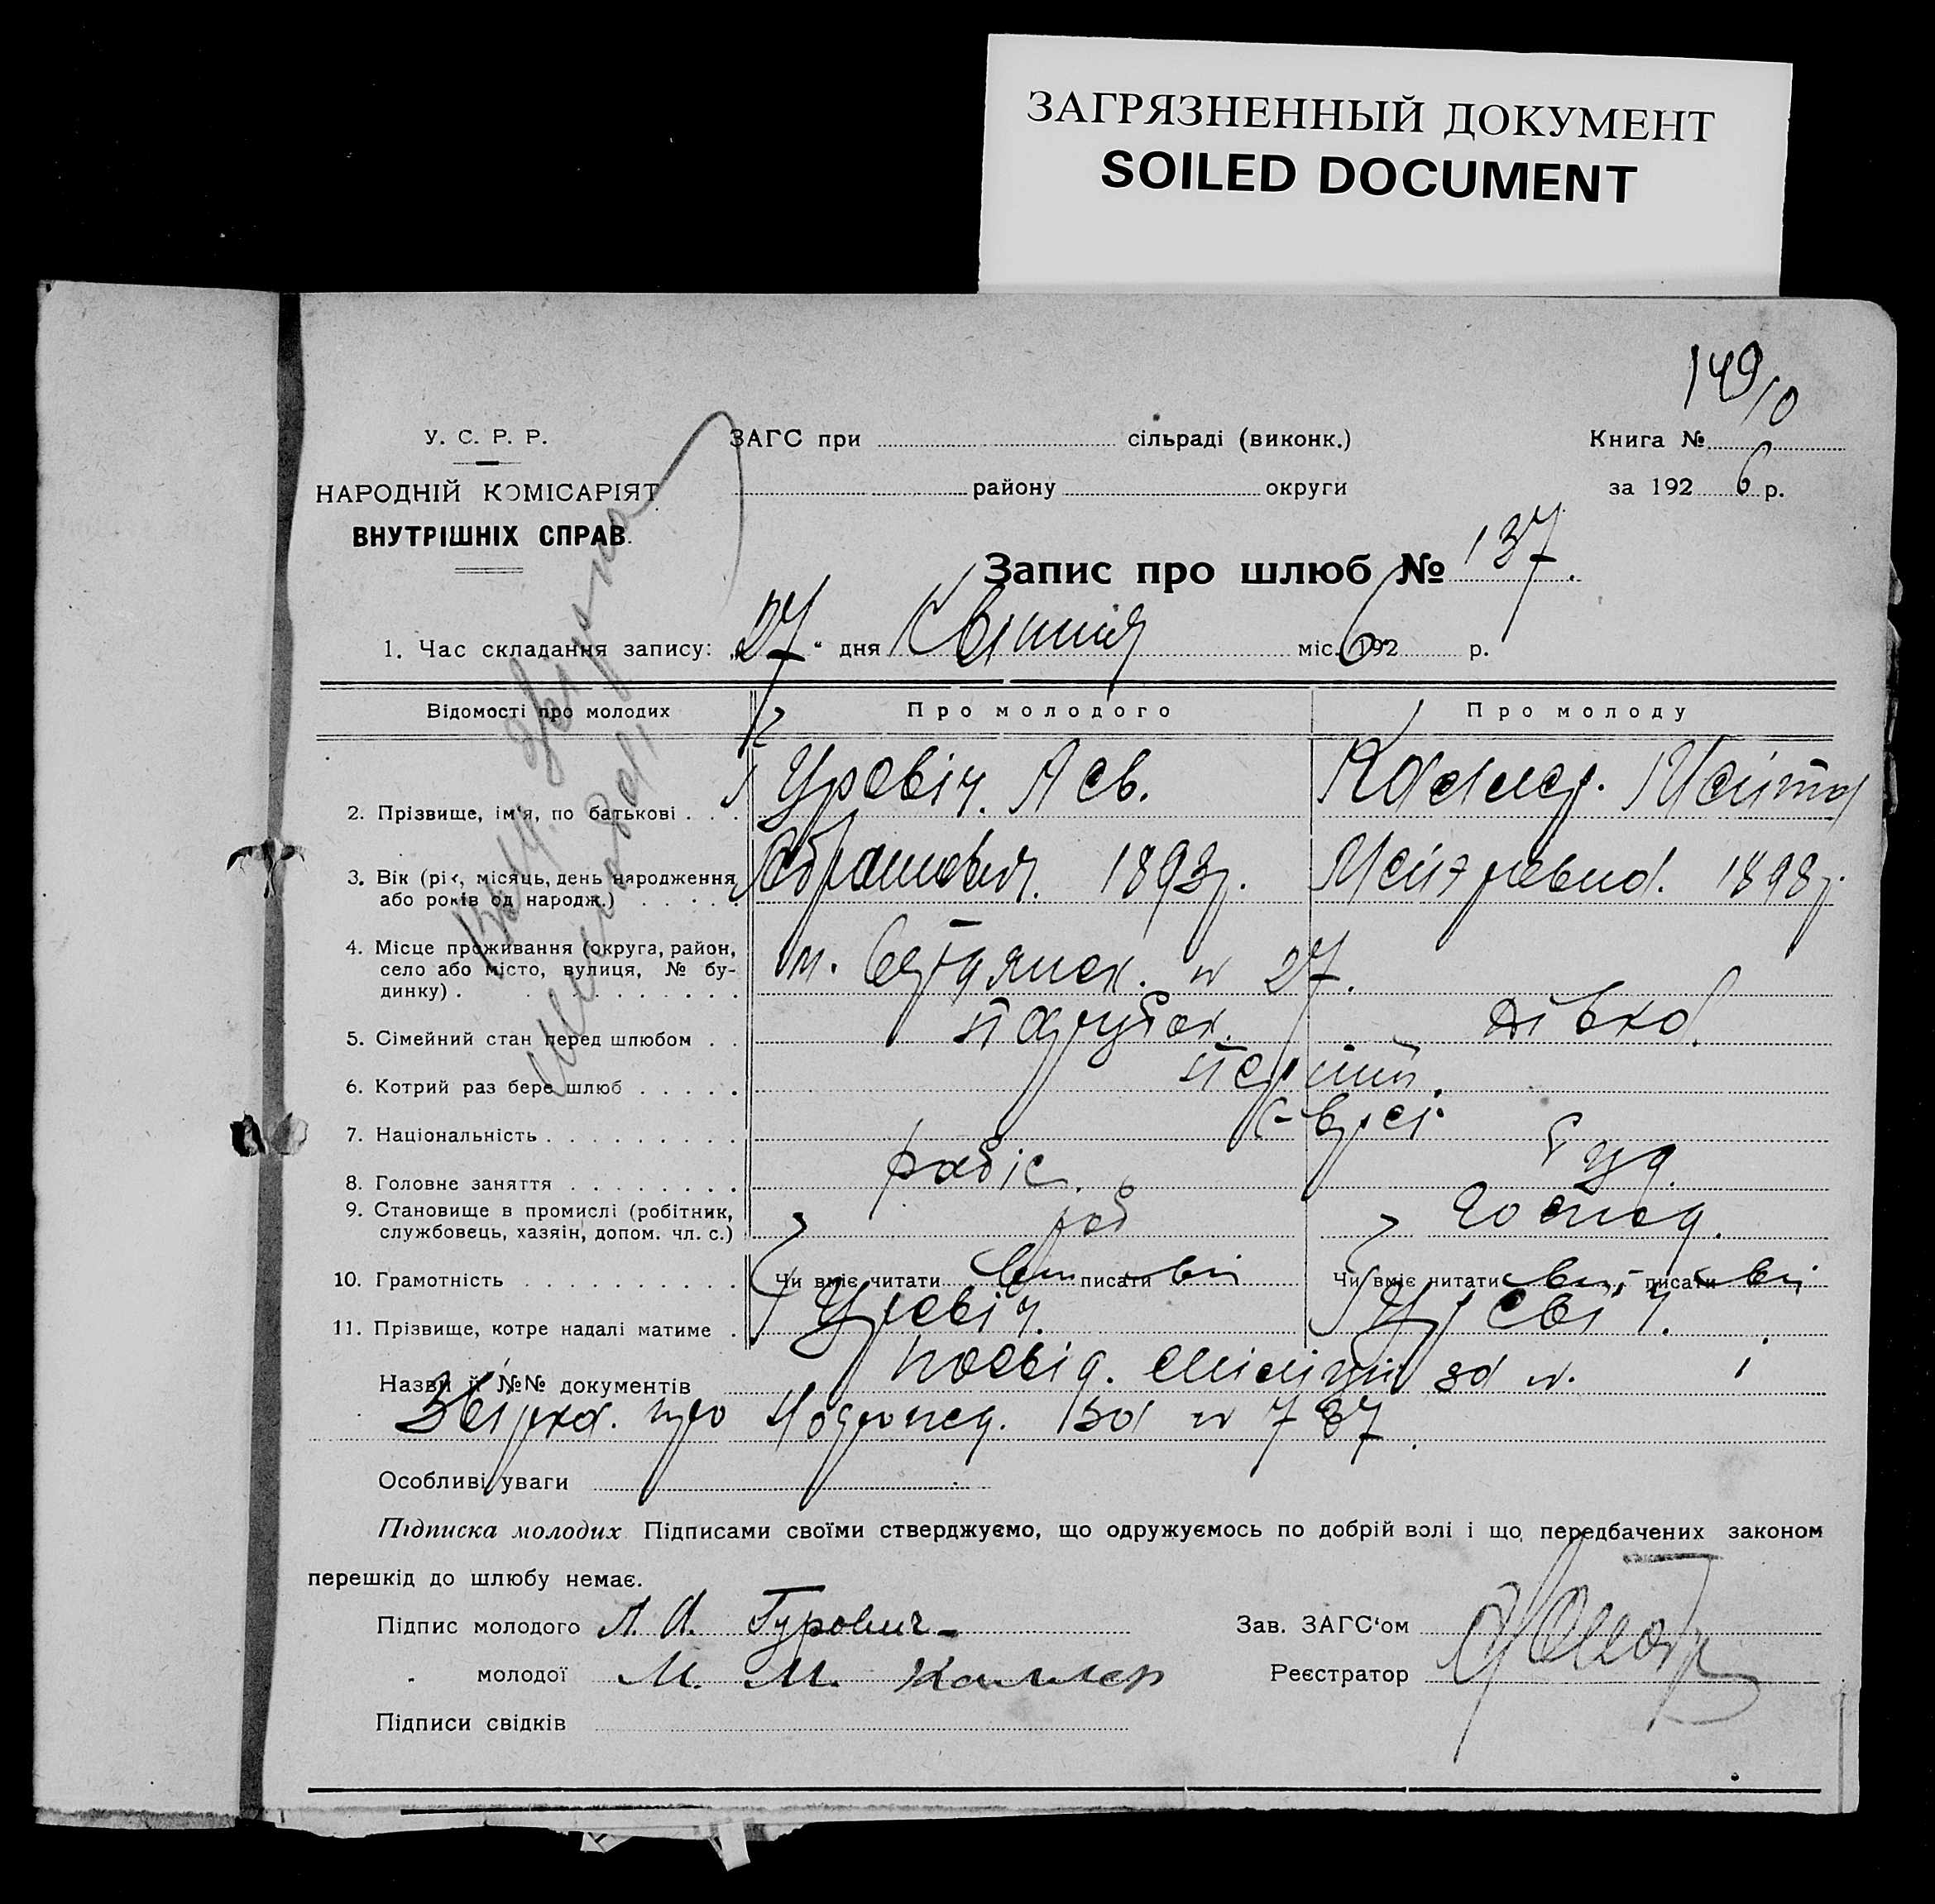 ЗАГРЯЗНЕННЫЙ ДОКУМЕНТ
SOILED DOCUMENT
149/10
У. С. Р. Р.
НАРОДНІЙ КОМІСАРІЯТ
ВНУТРІШНІХ СПРАВ.
ЗАГС при сільраді (виконк.)
району округи
Книга №
за 1926 р.
Запис про шлюб № 137.
1. Час складання запису: „27“ дня Квітня міс. 1926 р.
Відомості про молодих Про молодого Про молоду
2. Прізвище, ім'я, по батькові . . . Гуревіч. Лев. Каплер.
3. Вік (рік, місяць, день народження Абрамович. 1893р. 1898р.
або років од народж.) . . . . .
4. Місце проживання (округа, район, № 27.
село або місто, вулиця, № бу-
динку) . . . . . . . . . . .
5. Сімейний стан перед шлюбом . . парубок. дівка.
6. Котрий раз бере шлюб . . . . . перший.
7. Національність . . . . . . . . . Євреі.
8. Головне заняття . . . . . . . . робіс.
9. Становище в промислі (робітник, роб господ.
службовець, хазяін, допом. чл. с.)
10. Грамотність . . . . . . . . . . Чи вміє читати вм писати вм Чи вміє читати вм писати вм
11. Прізвище, котре надалі матиме . Гуревіч. Гуревіч.
Назви й №№ документів посвід. міліціи за №.
про за № 787
Особливі уваги
Підписка молодих Підписами своїми стверджуємо, що одружуємось по добрій волі і що передбачених законом
перешкід до шлюбу немає.
Підпис молодого Л. А. Гурович
Зав. ЗАГС'ом
„ молодої М. М. Каплер
Реєстратор
Підписи свідків